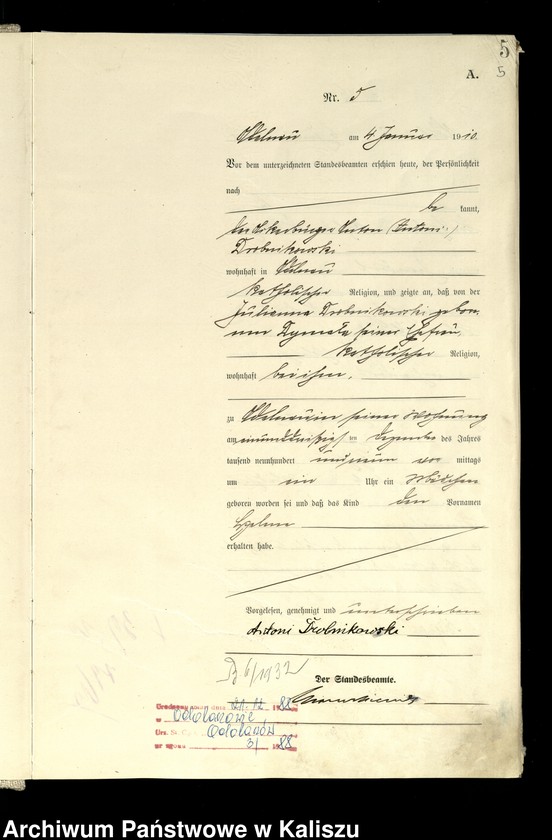 5
5
A.
Nr. 5
Adelnau am 4 Januar 1910.
Vor dem unterzeichneten Standesbeamten erschien heute, der Persönlichkeit
nach
be kannt,
der Ackerbürger Anton (Antoni)
Drobnikowski
wohnhaft in Adelnau
katholischer Religion, und zeigte an, daß von der
Julianna Drobnikowski gebor
nen seiner Ehefrau,
katholischer Religion,
wohnhaft bei ihm,
zu Adelnau in seiner Wohnung
am einunddreißigsten Dezember des Jahres
tausend neunhundert und neun vor mittags
um ein Uhr ein Mädchen
geboren worden sei und daß das Kind den Vornamen
Helene
erhalten habe.
Vorgelesen, genehmigt und unterschrieben
Antoni Drobnikowski
B 6/1932
Der Standesbeamte.
21.12 1988
w Odolanowie
Odolanów
nr zgonu 31 1988
Archiwum Państwowe w Kaliszu